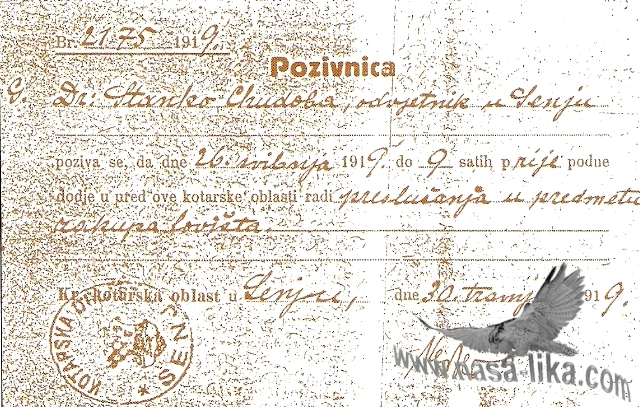 Br. 21.75 1919.
Pozivnica
G. Dr: Stanko Chudoba, odvjetnik u Senju
poziva se, da dne 26. svibnja 1919. do 9 satih prije podne
dodje u ured ove kotarske oblasti radi preslušanja u predmetu
zakupa lovišta.
Kr. kotarska oblast u Senju, dne 30. travnj 1919.
KOTARSKA SENJ
www.nasa-lika.com